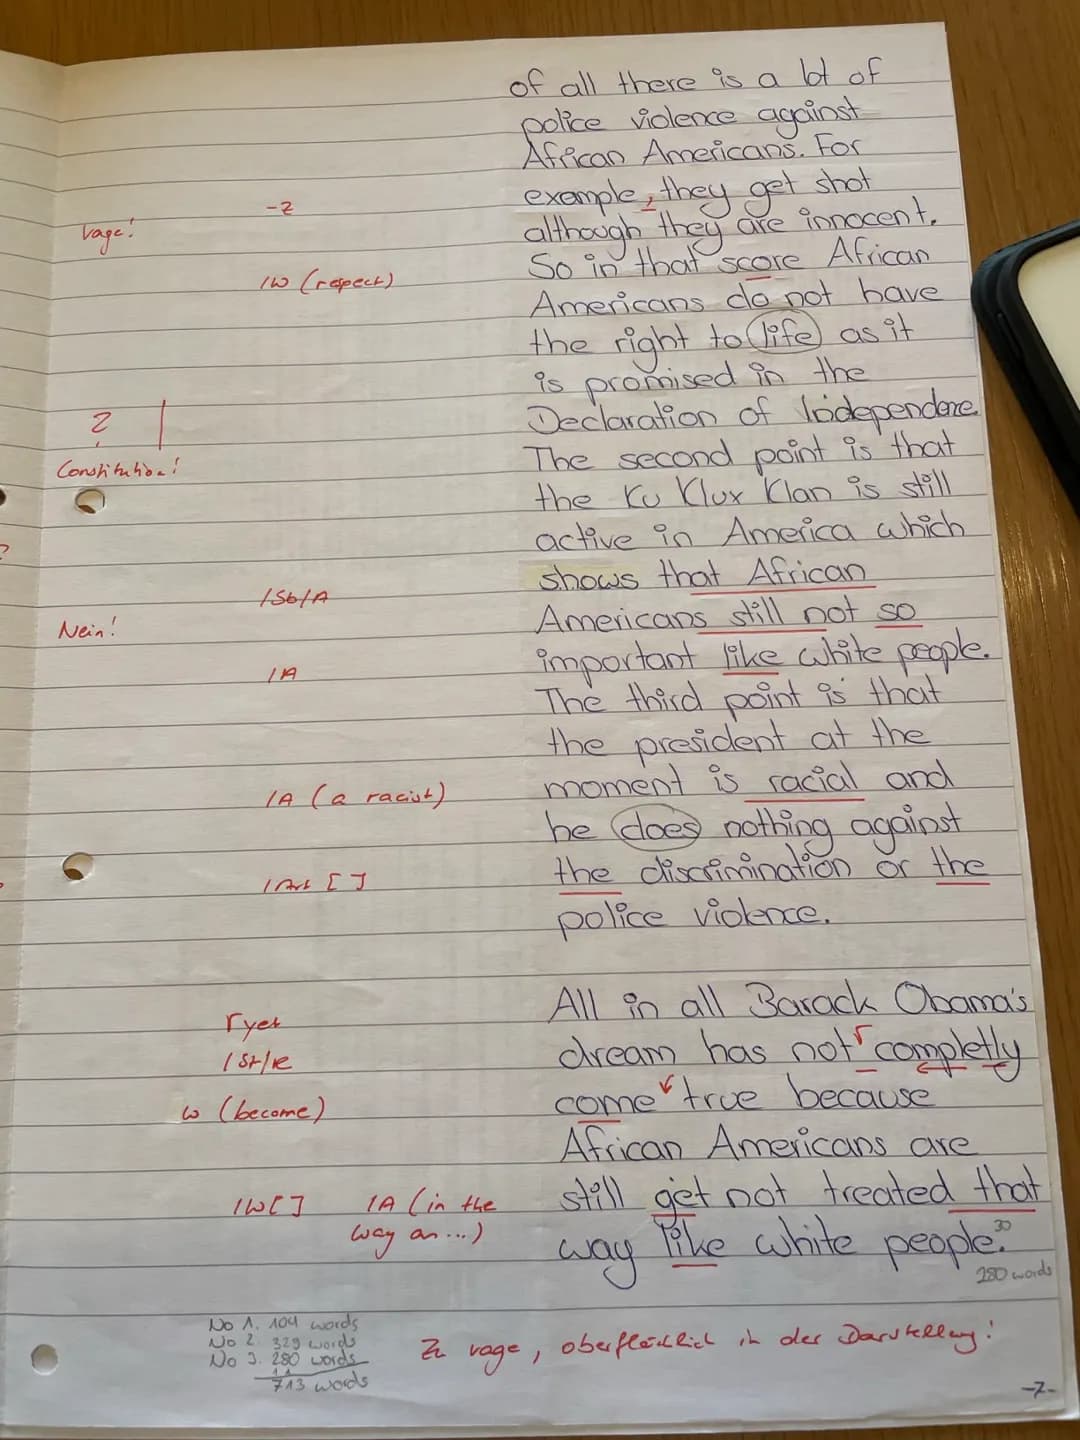 of all there is a lot of
police violence against
African Americans. For
-Z
example, they get shot
Vage!
although they are innocent.
/W (respect)
So in that score African
Americans do not have
the right to life as it
is promised in the
?
Declaration of Independene.
Constitution!
The second point is that
the Ku Klux Klan is still
active in America which
/Sb/A
shows that African
Nein!
Americans still not so
/A
important like white people.
The third point is that
the president at the
/A (a racist)
moment is racial and
he does nothing against
/Art []
the discrimination or the
police violence.
All in all Barack Obama's
ryet
/St/R
dream has not completly
W (become)
come true because
African Americans are
/W[] /A (in the
way an...)
still get not treated that
way like white people.
30
280 words
No 1. 104 words
No 2. 329 words
No 3. 280 words
713 words
Zu vage, oberflächlich in der Darstellung!
-7-